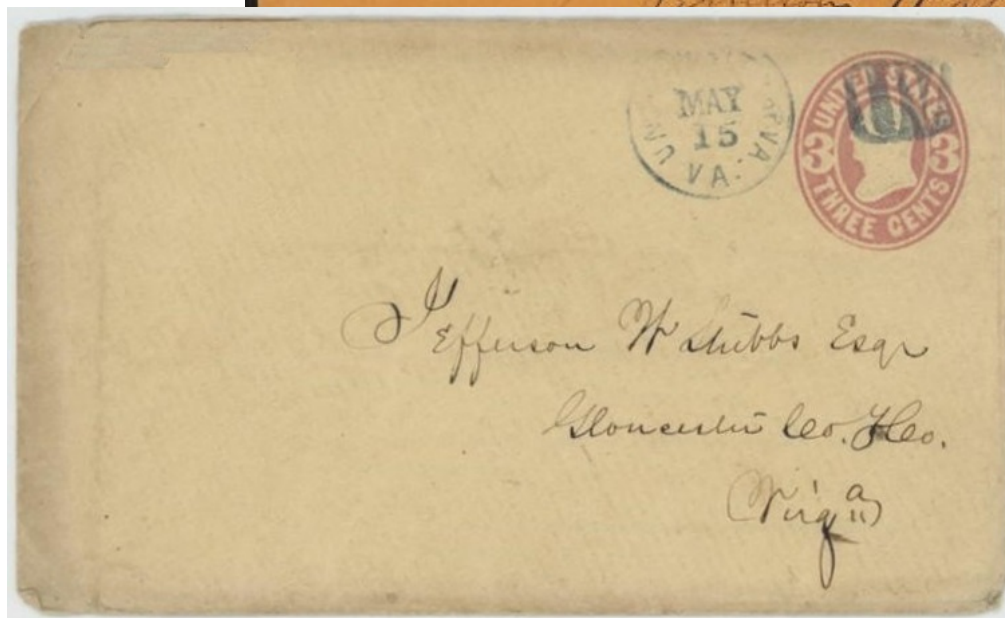 MAY
15
VA.
UNITED STATES
3 3
THREE CENTS
Jefferson W Stubbs Esqr
Gloucester Co. Ho.
Virga